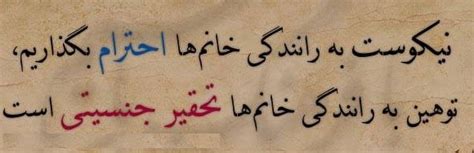 نیکوست به رانندگی خانم‌ها احترام بگذاریم،
توهین به رانندگی خانم‌ها تحقیر جنسیتی است